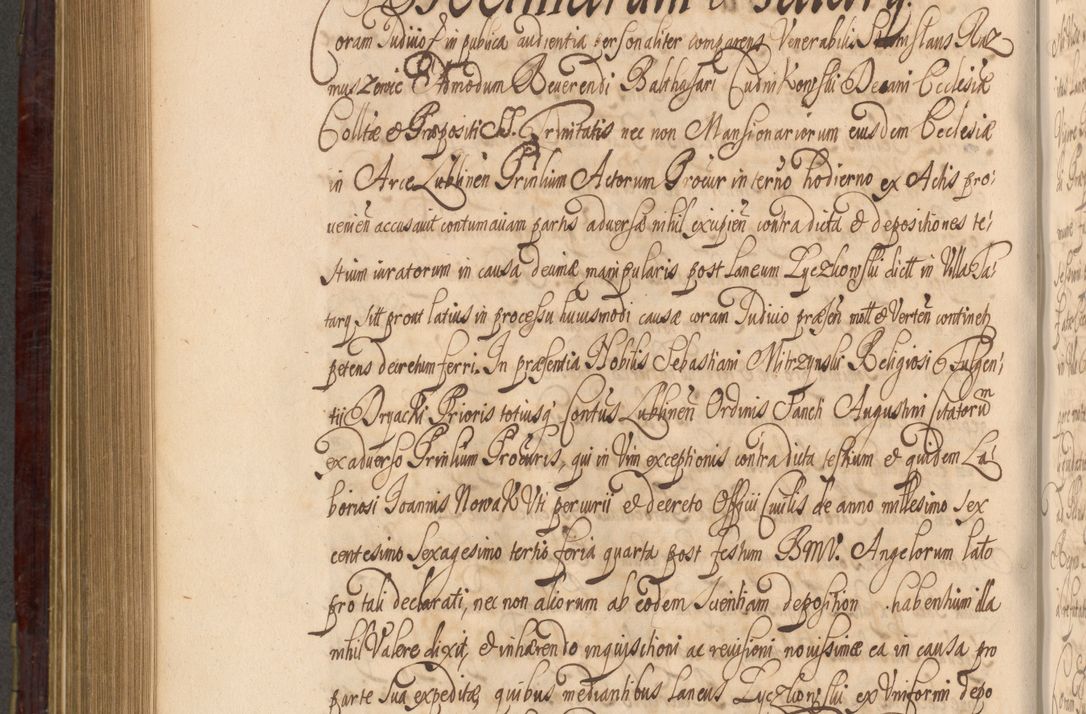 Decimarum et Salary.
Coram Judicio et in publica audientia personaliter comparens Venerabilis Stanislaus Raz
muszewic Admodum Reverendi Balthasari Cudni Konfski Decani Ecclesiæ
Colltæ & Præpositi SS. Trinitatis nec non Mansionariorum eiusdem Ecclesiæ
in Arce Lublinen Prinlium Actorum Procur in terno hodierno ex Actis pro:
uenien accusauit contumaciam partis aduersæ nihil excipien contra dicta & depositiones te:
stium iuratorum in causa decimæ manipularis post Laneum Lyczkowski dict in Villa Ta:
tary sitt prout latius in processu huiusmodi causæ coram Judicio præsen mott & Verten continet
petens decretum ferri. In præsentia Nobilis Sebastiani Mitrzynski Religiosi & Fulgen:
tij Dryacki Prioris totiusq Contus Lublinen Ordinis Sancti Augustini Citatorum
ex aduerso Prinlium Procuris, qui in Vim exceptionis contra dicta testium et quidem La:
boriosi Joannis Nowak Vti periurii & decreto Officii Ciuilis de anno millesimo sex
centesimo sexagesimo tertio feria quarta post festum BMV. Angelorum lato
pro tali declarati, nec non aliorum ab eodem scientiam deposition habentium illa
nihil Valere dixit, & inhærendo inquisitioni ac reuisioni nouissimæ ea in causa pro
parte sua expeditæ quibus mediantibus Laneus Lyczkowski ex Vniformi depo